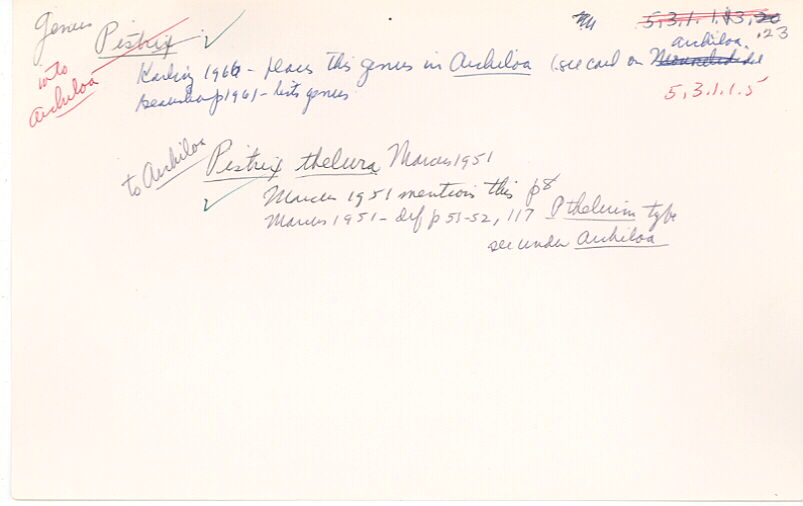 Genus Pistrix 5.3.1.1.13.20
.23
into Archiloa
Karling 1966 - places this genus in Archiloa (see card on Monocelididae
archiloa
Beauchamp 1961 - lists genus
5.3.1.1.5
to Archiloa Pistrix thelura Marcus 1951
Marcus 1951 mentions this p8
Marcus 1951 - def p 51-52, 117 P thelurin type
see under Archiloa